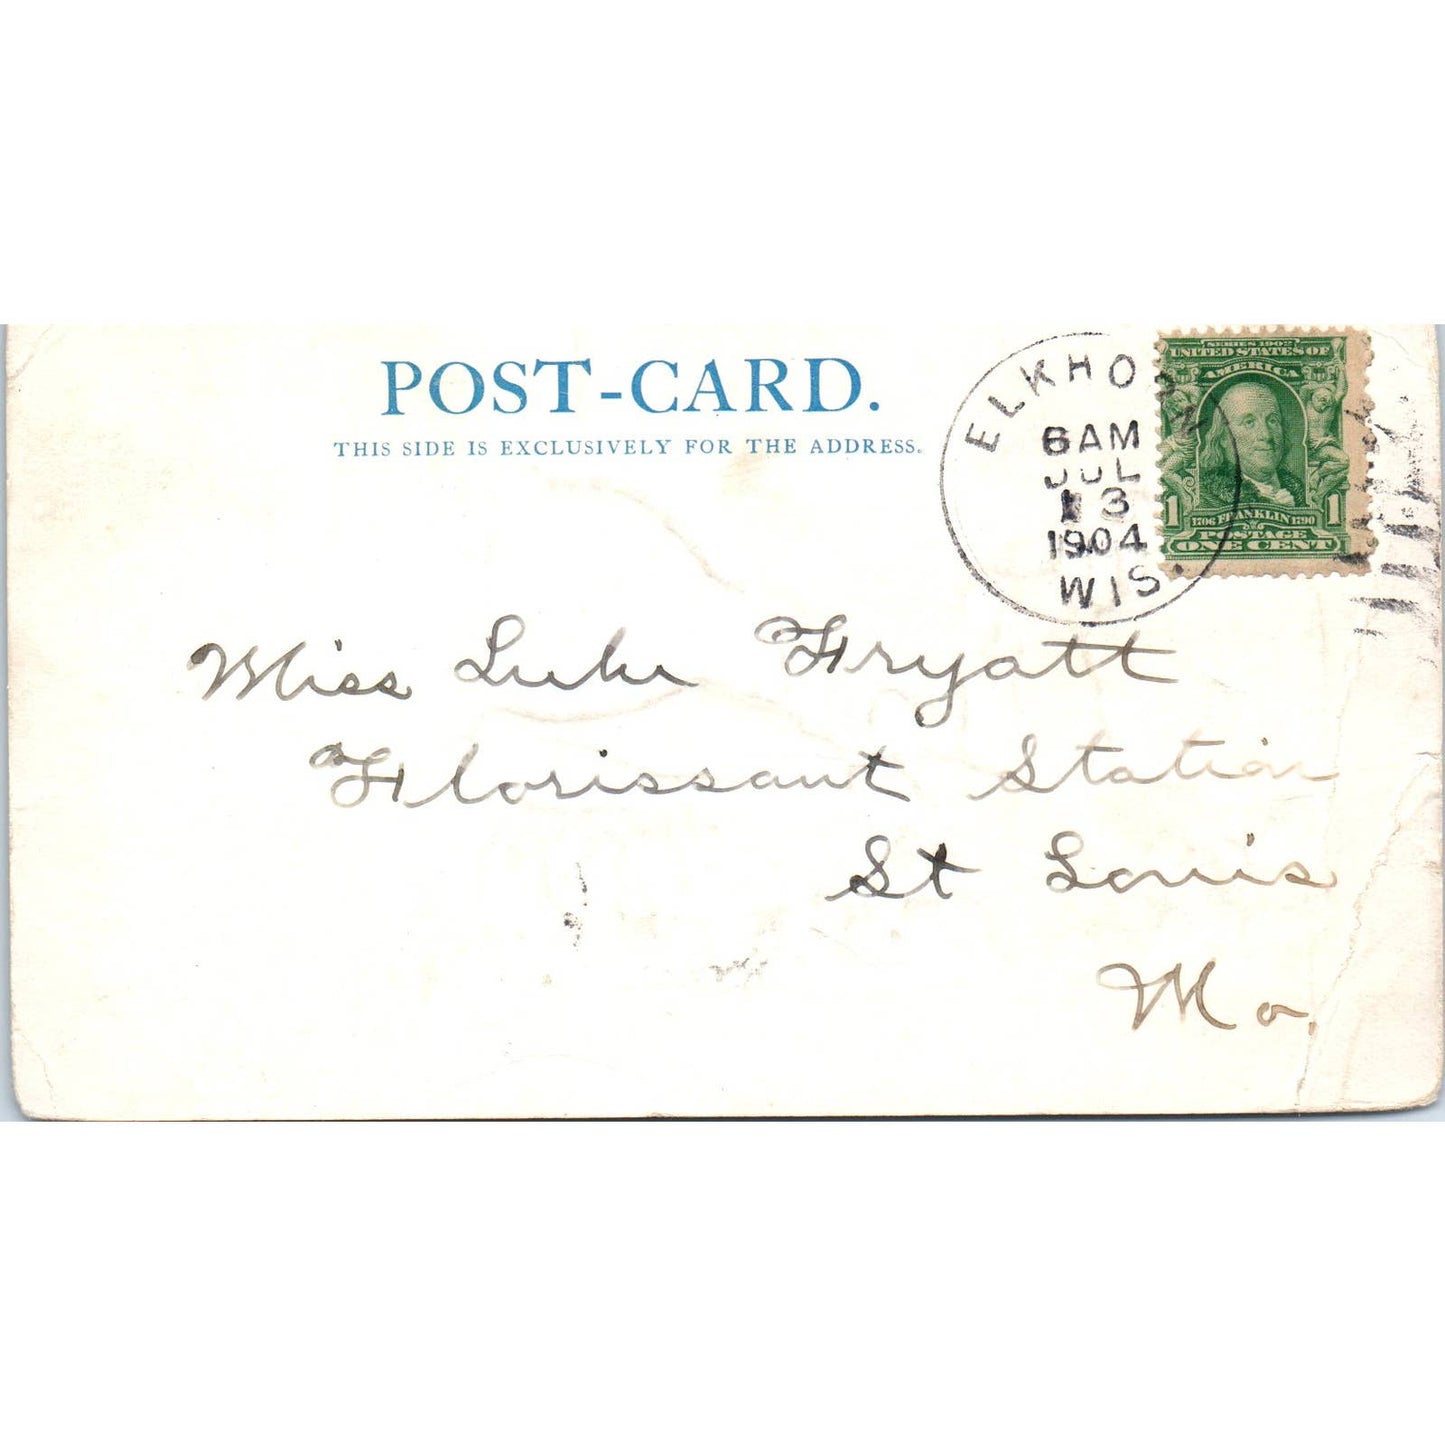 POST-CARD.
THIS SIDE IS EXCLUSIVELY FOR THE ADDRESS.
ELKHORN
6 AM
JUL
13
1904
WIS.
SERIES 1902
UNITED STATES OF
AMERICA
1 1706 FRANKLIN 1790 1
POSTAGE
ONE CENT
Miss Fryatt
Florissant Station
St Louis
Mo.